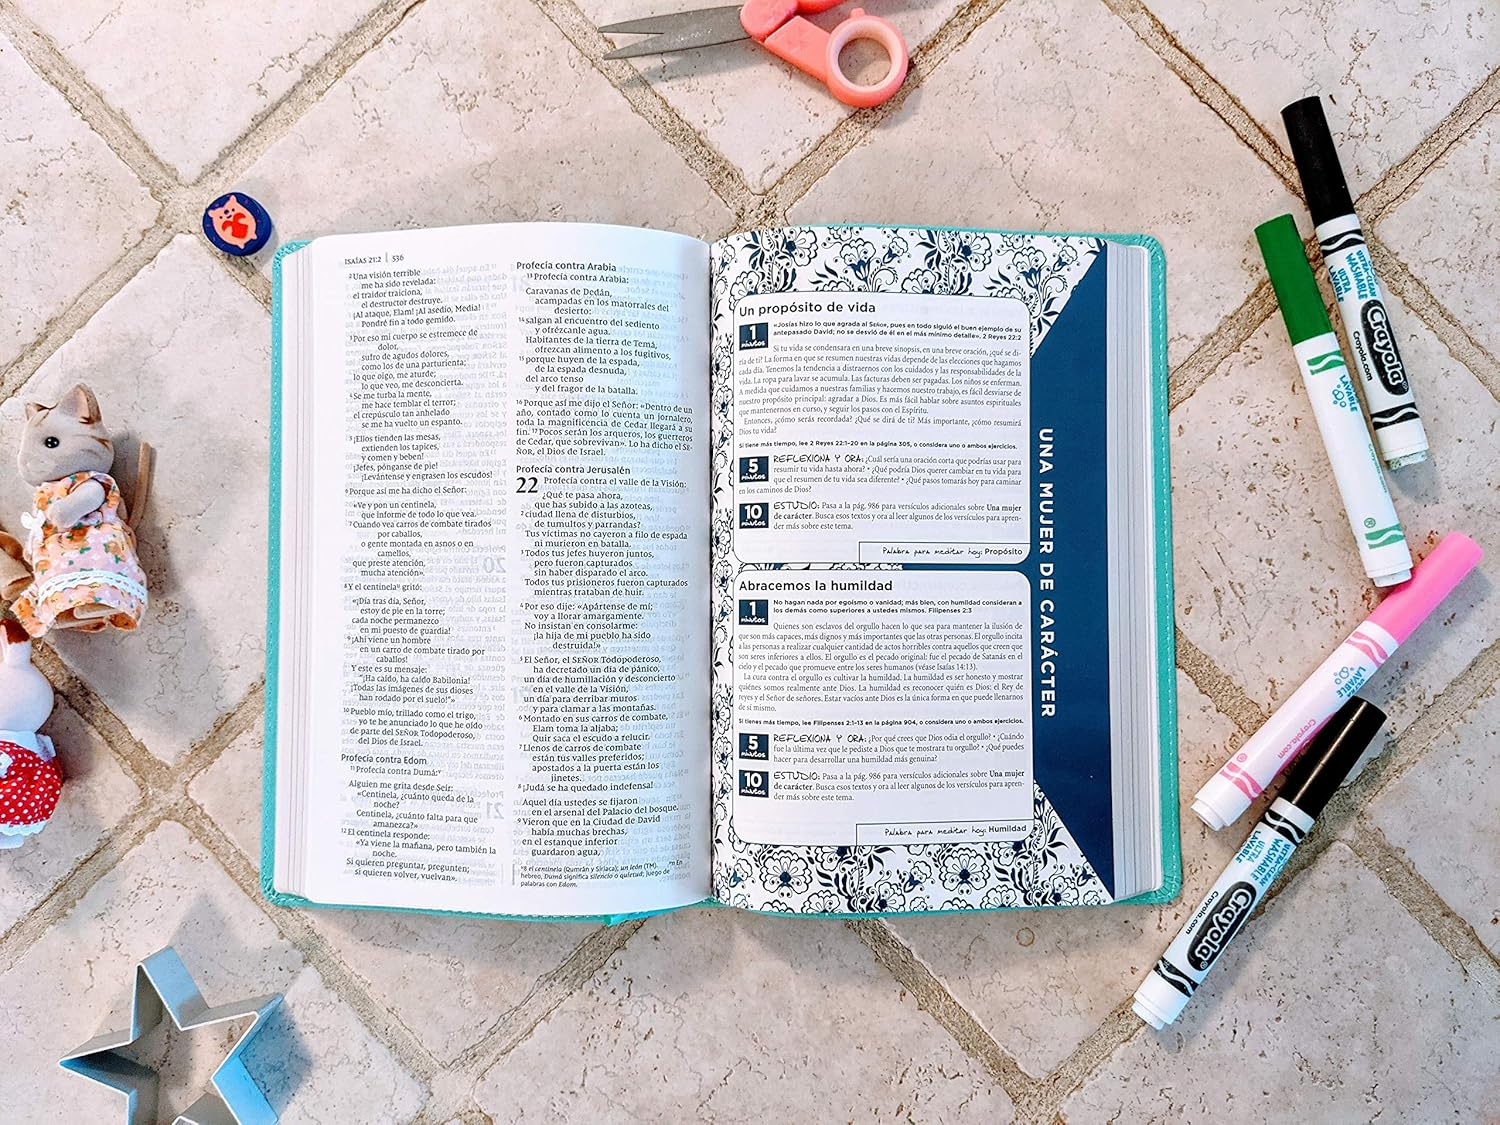 ISAÍAS 21:2 | 536
2 Una visión terrible
me ha sido revelada:
el traidor traiciona,
el destructor destruye.
¡Al ataque, Elam! ¡Al asedio, Media!
Pondré fin a todo gemido.
3 Por eso mi cuerpo se estremece de
dolor,
sufro de agudos dolores,
como los de una parturienta;
lo que oigo, me aturde;
lo que veo, me desconcierta.
4 Se me turba la mente,
me hace temblar el terror;
el crepúsculo tan anhelado
se me ha vuelto un espanto.
5 ¡Ellos tienden las mesas,
extienden los tapices,
y comen y beben!
¡Jefes, pónganse de pie!
¡Levántense y engrasen los escudos!
6 Porque así me ha dicho el Señor:
«Ve y pon un centinela,
que informe de todo lo que vea.
7 Cuando vea carros de combate tirados
por caballos,
o gente montada en asnos o en
camellos,
que preste atención,
mucha atención».
8 Y el centinela gritó:
«¡Día tras día, Señor,
estoy de pie en la torre;
cada noche permanezco
en mi puesto de guardia!
9 ¡Ahí viene un hombre
en un carro de combate tirado por
caballos!
Y este es su mensaje:
“¡Ha caído, ha caído Babilonia!
¡Todas las imágenes de sus dioses
han rodado por el suelo!”»
10 Pueblo mío, trillado como el trigo,
yo te he anunciado lo que he oído
de parte del SEÑOR Todopoderoso,
del Dios de Israel.
Profecía contra Edom
11 Profecía contra Dumá:
Alguien me grita desde Seír:
«Centinela, ¿cuánto queda de la
noche?
Centinela, ¿cuánto falta para que
amanezca?»
12 El centinela responde:
«Ya viene la mañana, pero también la
noche.
Si quieren preguntar, pregunten;
si quieren volver, vuelvan».
Profecía contra Arabia
13 Profecía contra Arabia:
Caravanas de Dedán,
acampadas en los matorrales del
desierto:
14 salgan al encuentro del sediento
y ofrézcanle agua.
Habitantes de la tierra de Temá,
ofrezcan alimento a los fugitivos,
15 porque huyen de la espada,
de la espada desnuda,
del arco tenso
y del fragor de la batalla.
16 Porque así me dijo el Señor: «Dentro de un
año, contado como lo cuenta un jornalero,
toda la magnificencia de Cedar llegará a su
fin. 17 Pocos serán los arqueros, los guerreros
de Cedar, que sobrevivan». Lo ha dicho el SE-
ÑOR, el Dios de Israel.
Profecía contra Jerusalén
22 Profecía contra el valle de la Visión:
¿Qué te pasa ahora,
que has subido a las azoteas,
2 ciudad llena de disturbios,
de tumultos y parrandas?
Tus víctimas no cayeron a filo de espada
ni murieron en batalla.
3 Todos tus jefes huyeron juntos,
pero fueron capturados
sin haber disparado el arco.
Todos tus prisioneros fueron capturados
mientras trataban de huir.
4 Por eso dije: «Apártense de mí;
voy a llorar amargamente.
No insistan en consolarme:
¡la hija de mi pueblo ha sido
destruida!»
5 El Señor, el SEÑOR Todopoderoso,
ha decretado un día de pánico,
un día de humillación y desconcierto
en el valle de la Visión,
un día para derribar muros
y para clamar a las montañas.
6 Montado en sus carros de combate,
Elam toma la aljaba;
Quir saca el escudo a relucir.
7 Llenos de carros de combate
están tus valles preferidos;
apostados a la puerta están los
jinetes.
8 ¡Judá se ha quedado indefensa!
Aquel día ustedes se fijaron
en el arsenal del Palacio del bosque.
9 Vieron que en la Ciudad de David
había muchas brechas,
en el estanque inferior
guardaron agua,
8 el centinela (Qumrán y Siríaca); un león (TM). 11 En
hebreo, Dumá significa silencio o quietud; juego de
palabras con Edom.
Un propósito de vida
1 minutos
«Josías hizo lo que agrada al SEÑOR, pues en todo siguió el buen ejemplo de su
antepasado David; no se desvió de él en el más mínimo detalle». 2 Reyes 22:2
Si tu vida se condensara en una breve sinopsis, en una breve oración, ¿qué se di-
ría de ti? La forma en que se resumen nuestras vidas depende de las elecciones que hagamos
cada día. Tenemos la tendencia a distraernos con los cuidados y las responsabilidades de la
vida. La ropa para lavar se acumula. Las facturas deben ser pagadas. Los niños se enferman.
A medida que cuidamos a nuestras familias y hacemos nuestro trabajo, es fácil desviarse de
nuestro propósito principal: agradar a Dios. Es más fácil hablar sobre asuntos espirituales
que mantenernos en curso, y seguir los pasos con el Espíritu.
Entonces, ¿cómo serás recordada? ¿Qué se dirá de ti? Más importante, ¿cómo resumirá
Dios tu vida?
Si tiene más tiempo, lee 2 Reyes 22:1-20 en la página 305, o considera uno o ambos ejercicios.
5 minutos
REFLEXIONA Y ORA: ¿Cuál sería una oración corta que podrías usar para
resumir tu vida hasta ahora? • ¿Qué podría Dios querer cambiar en tu vida para
que el resumen de tu vida sea diferente? • ¿Qué pasos tomarás hoy para caminar
en los caminos de Dios?
10 minutos
ESTUDIO: Pasa a la pág. 986 para versículos adicionales sobre Una mujer
de carácter. Busca esos textos y ora al leer algunos de los versículos para apren-
der más sobre este tema.
Palabra para meditar hoy: Propósito
Abracemos la humildad
1 minutos
No hagan nada por egoísmo o vanidad; más bien, con humildad consideran a
los demás como superiores a ustedes mismos. Filipenses 2:3
Quienes son esclavos del orgullo hacen lo que sea para mantener la ilusión de
que son más capaces, más dignos y más importantes que las otras personas. El orgullo incita
a las personas a realizar cualquier cantidad de actos horribles contra aquellos que creen que
son seres inferiores a ellos. El orgullo es el pecado original: fue el pecado de Satanás en el
cielo y el pecado que promueve entre los seres humanos (véase Isaías 14:13).
La cura contra el orgullo es cultivar la humildad. La humildad es ser honesto y mostrar
quiénes somos realmente ante Dios. La humildad es reconocer quién es Dios: el Rey de
reyes y el Señor de señores. Estar vacíos ante Dios es la única forma en que puede llenarnos
de sí mismo.
Si tienes más tiempo, lee Filipenses 2:1-13 en la página 904, o considera uno o ambos ejercicios.
5 minutos
REFLEXIONA Y ORA: ¿Por qué crees que Dios odia el orgullo? • ¿Cuándo
fue la última vez que le pediste a Dios que te mostrara tu orgullo? • ¿Qué puedes
hacer para desarrollar una humildad más genuina?
10 minutos
ESTUDIO: Pasa a la pág. 986 para versículos adicionales sobre Una mujer
de carácter. Busca esos textos y ora al leer algunos de los versículos para apren-
der más sobre este tema.
Palabra para meditar hoy: Humildad
UNA MUJER DE CARÁCTER
ULTRA-CLEAN
WASHABLE
ULTRA
LAVABLE
Crayola
Crayola.com
LAVABLE
LAVABLE
Crayola.com
ULTRA-CLEAN
WASHABLE
ULTRA
LAVABLE
Crayola
Crayola.com